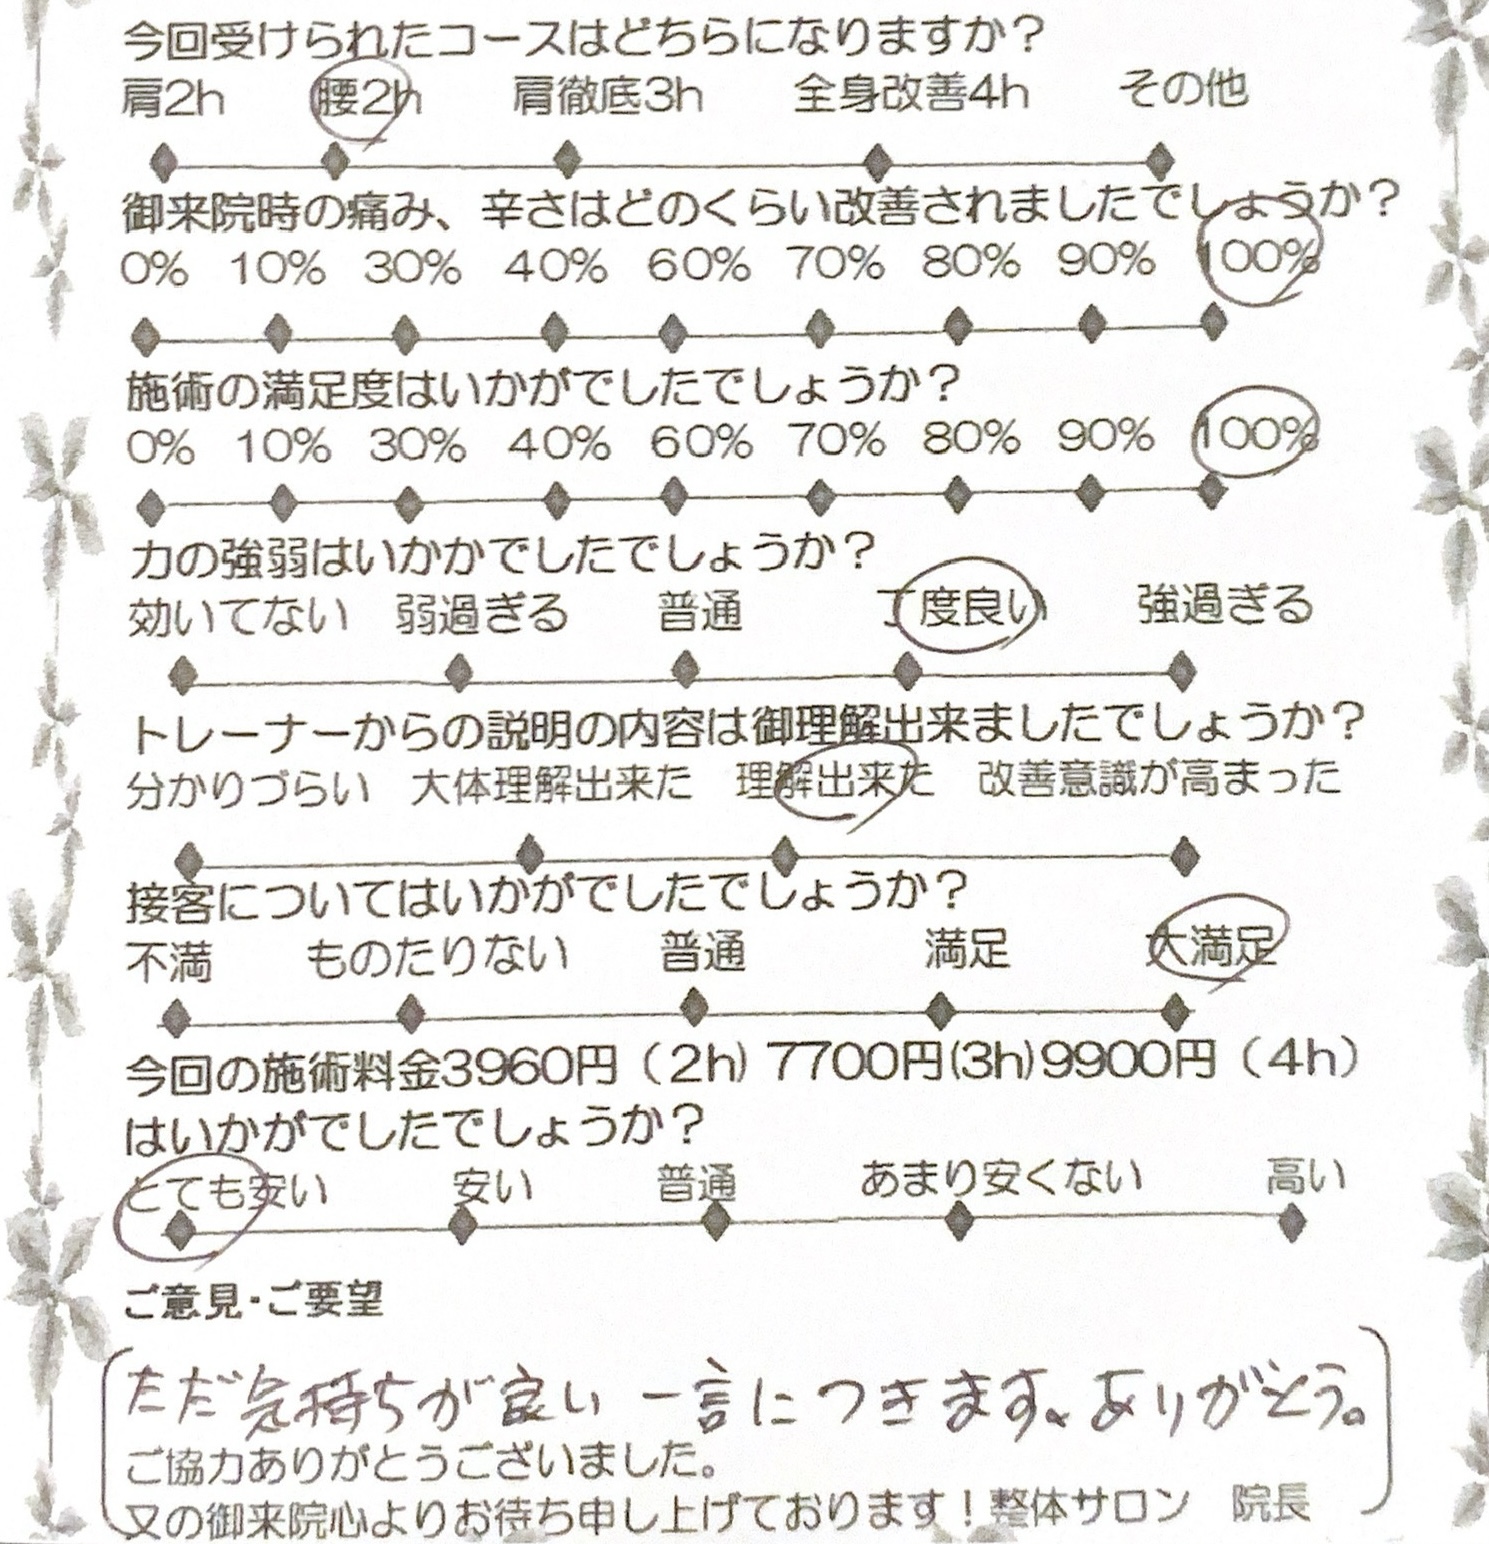 今回受けられたコースはどちらになりますか？
肩2h 腰2h 肩徹底3h 全身改善4h その他
御来院時の痛み、辛さはどのくらい改善されましたでしょうか？
0% 10% 30% 40% 60% 70% 80% 90% 100%
施術の満足度はいかがでしたでしょうか？
0% 10% 30% 40% 60% 70% 80% 90% 100%
力の強弱はいかかでしたでしょうか？
効いてない 弱過ぎる 普通 丁度良い 強過ぎる
トレーナーからの説明の内容は御理解出来ましたでしょうか？
分かりづらい 大体理解出来た 理解出来た 改善意識が高まった
接客についてはいかがでしたでしょうか？
不満 ものたりない 普通 満足 大満足
今回の施術料金3960円（2h) 7700円(3h)9900円（4h）
はいかがでしたでしょうか？
とても安い 安い 普通 あまり安くない 高い
ご意見・ご要望
ただ気持ちが良い 一言につきます。ありがとう。
ご協力ありがとうございました。
又の御来院心よりお待ち申し上げております！整体サロン 院長